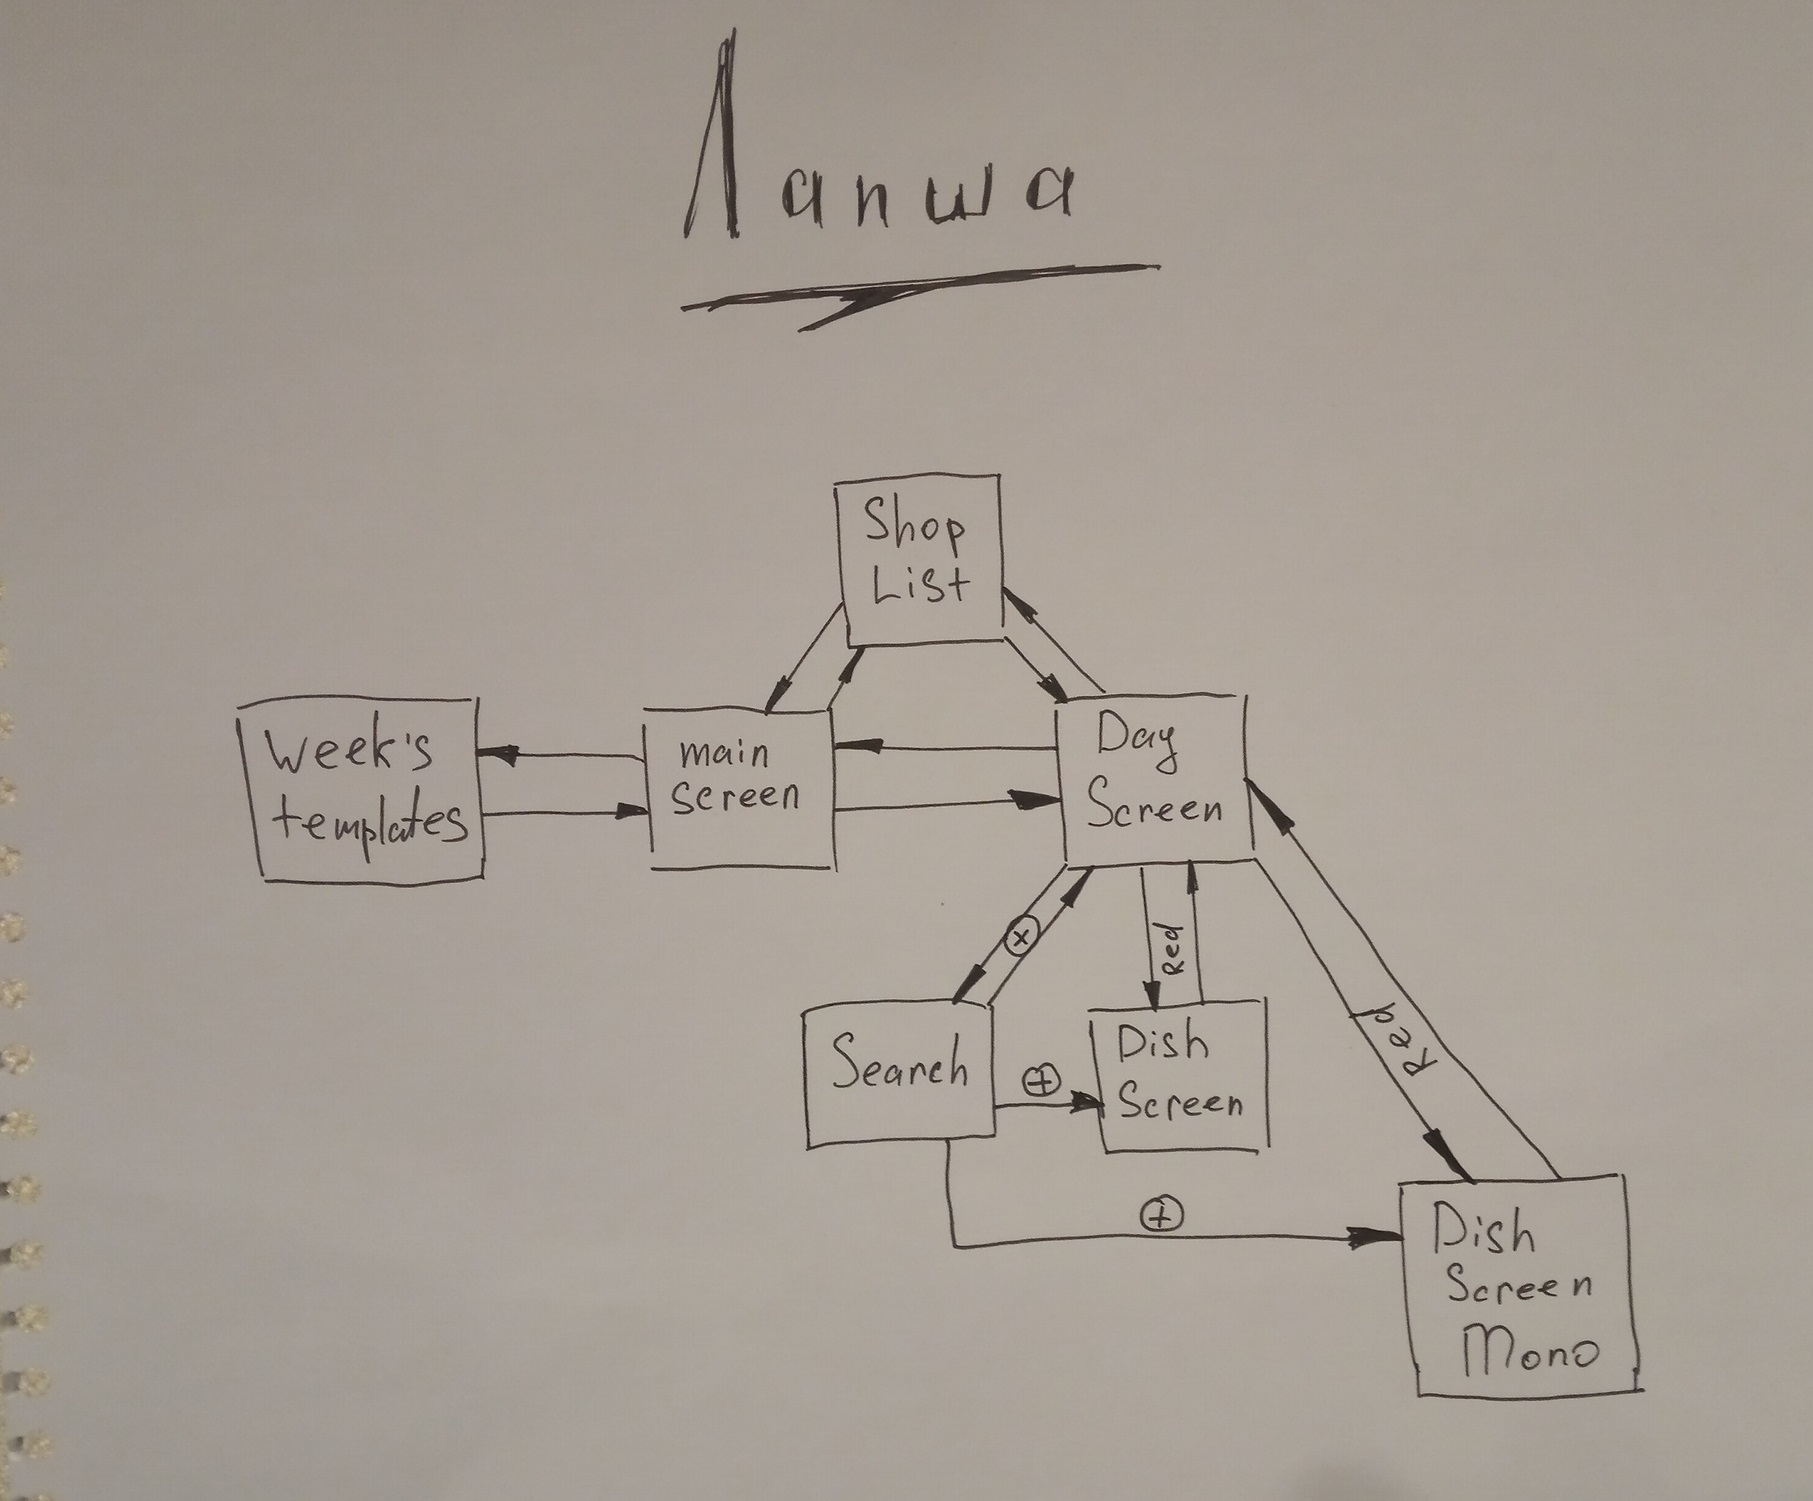 Лапша
Shop
List
Week's
templates
main
screen
Day
Screen
+
Red
Search
+
Dish
Screen
Red
+
Dish
Screen
Mono